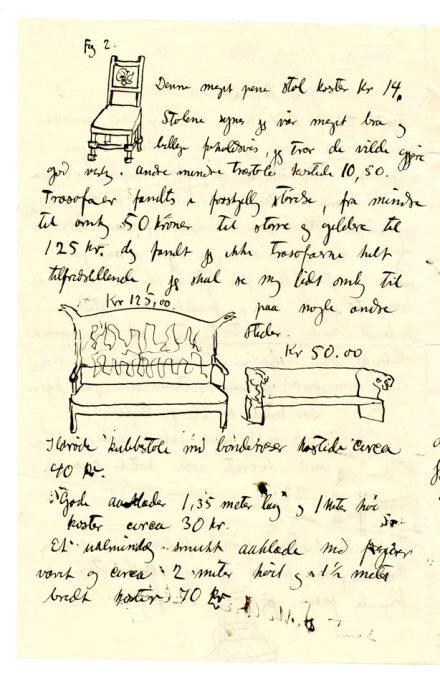 Fig 2.
Denne meget pene stol koster Kr 14.
Stolene synes jeg var meget bra og
billige forholdsvis, jeg tror de vilde gjøre
god verk. andre mindre træstole kostede 10,50.
Træsofaer fandtes i forskjellig størelse, fra mindre
til omkg 50 kroner til større og gildere til
125 kr. dog fandt jeg ikke træsofaerne helt
tilfredstillende jeg skal se mig lidt omkg til
Kr 125,00. paa nogle andre
steder.
Kr 50.00
kubbstole med kostede circa
40 kr.
Gode aaklæder 1,35 meter lang og 1 meter høi
koster circa 30 kr.
Et ualmindelig smukt aaklæde med figurer
vævet og circa 2 meter høit og 1½ meter
bredt koster 70 kr